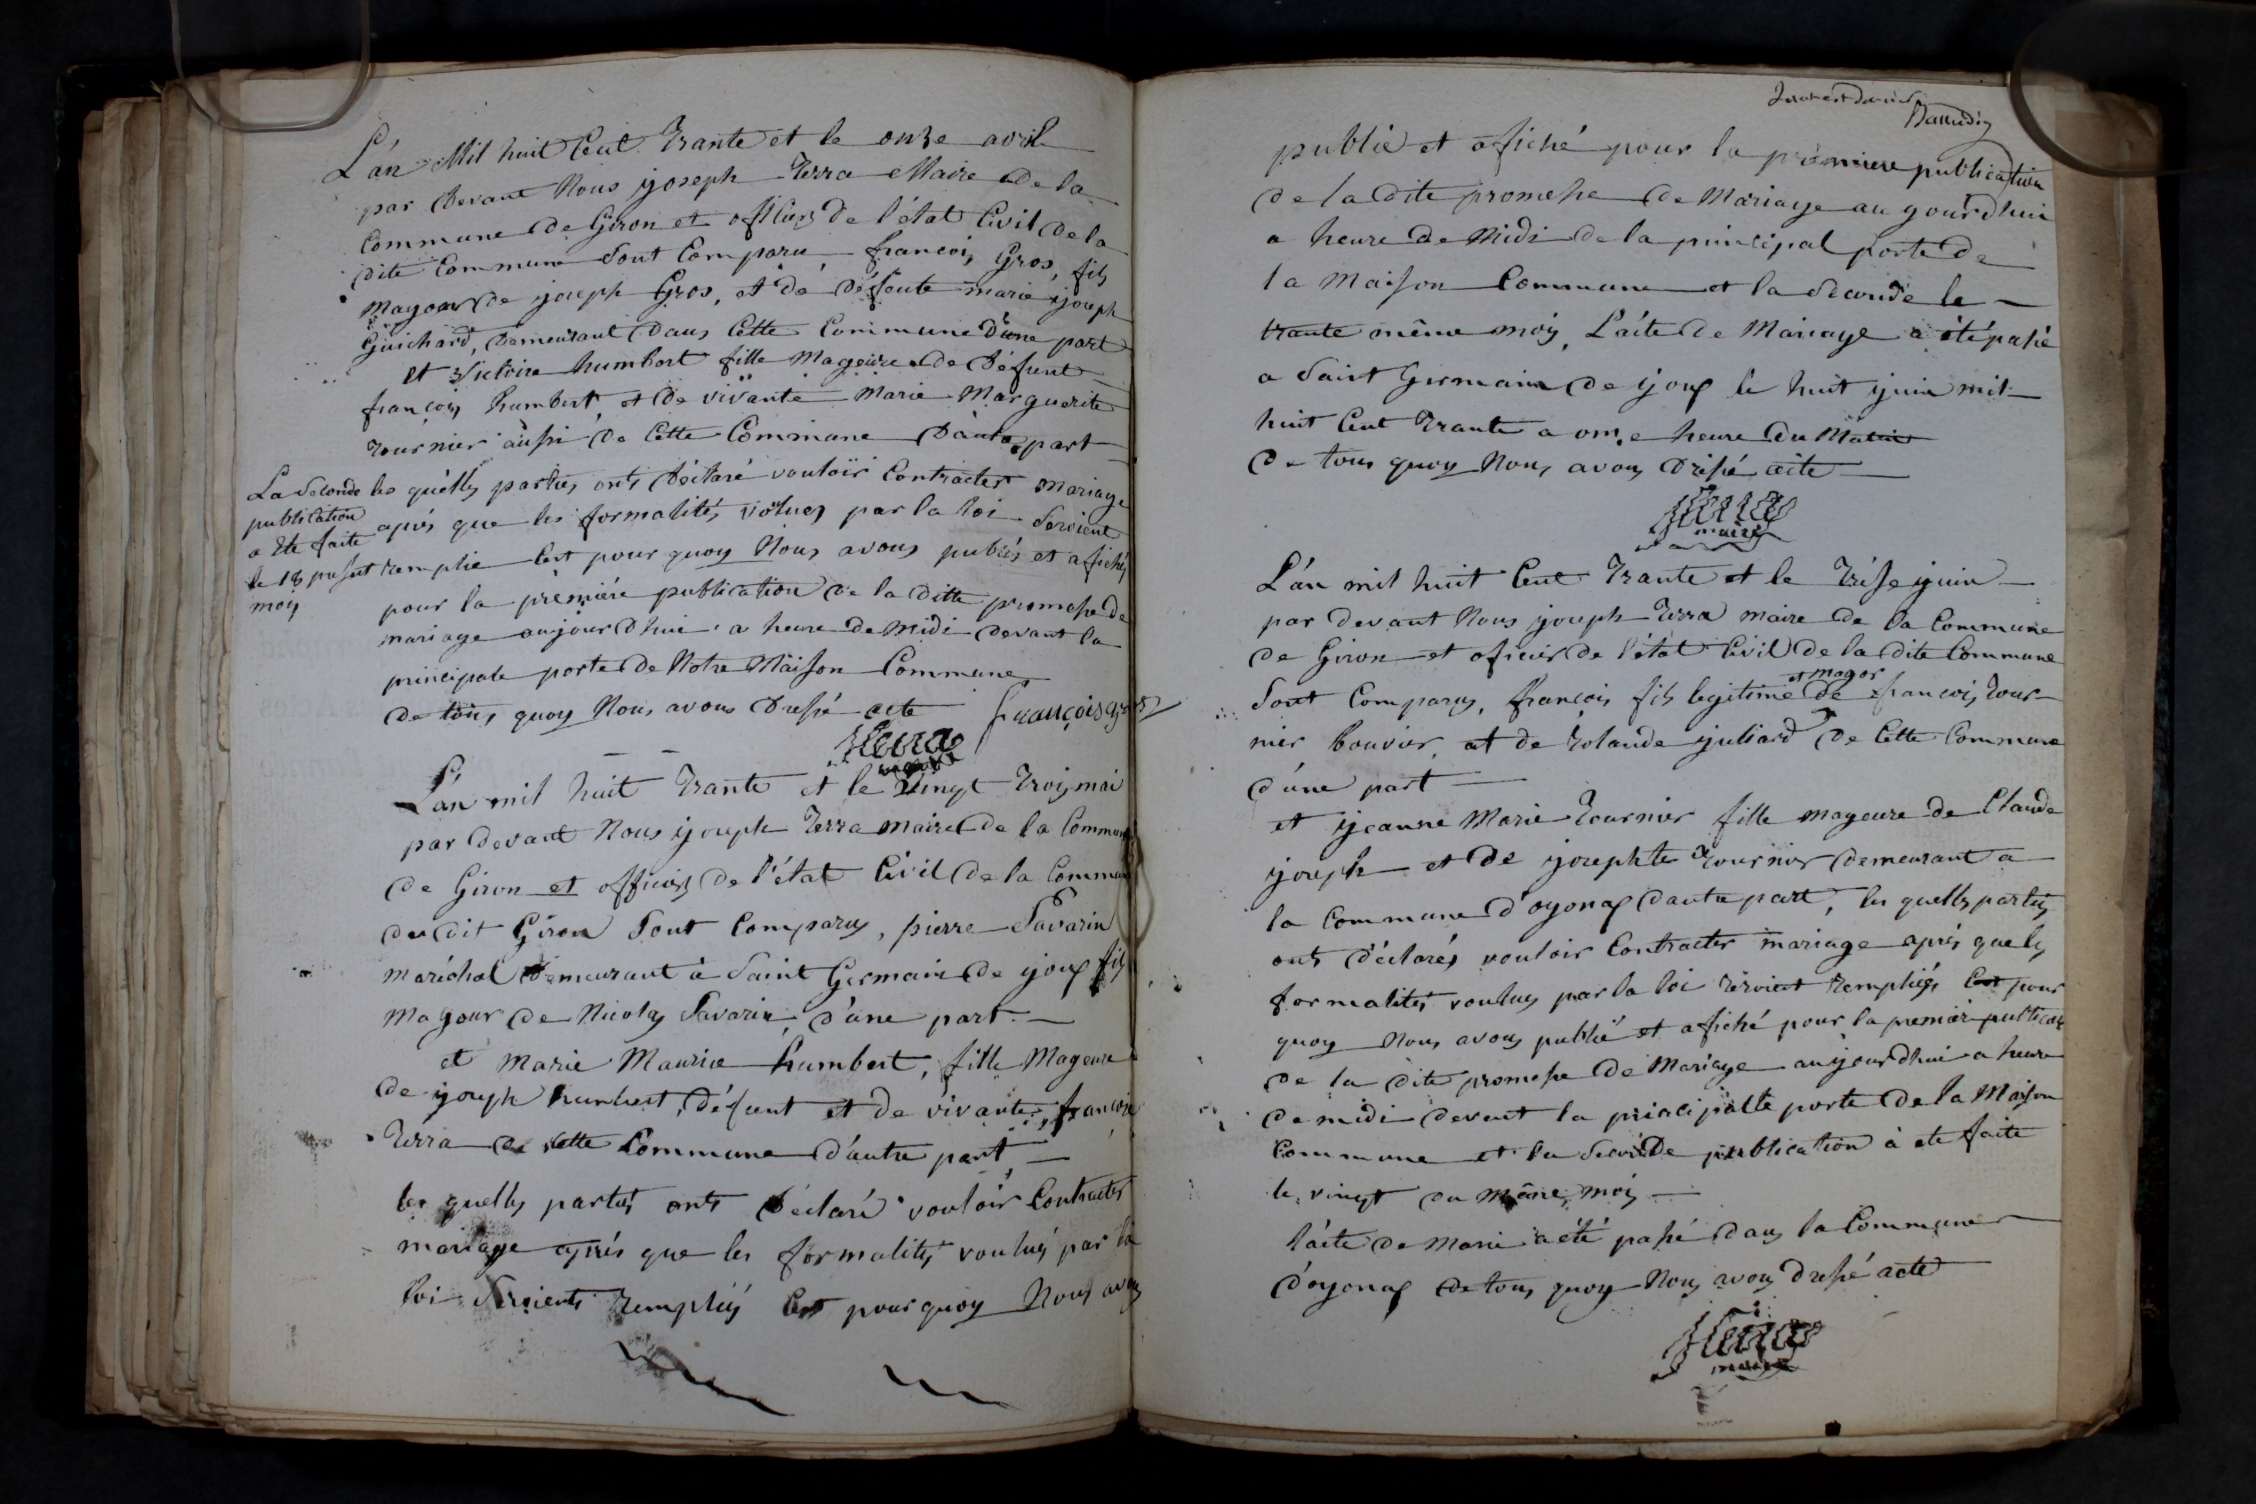 L'an Mil huit Cent Trante et le onze avril
par devant Nous yjoseph Terra Maire de la
Commune de Giron et officiers de l'état Civil de la
dite Commune Sont Comparu francois Gros, fils
mayour de yjoseph Gros, et de défeute marie yjoseph
Guichard, demeurant dans Cette Commune d'une part
et Victoire humbert fille Mageure de défunt
françois humbert, et de vivante Marie Marguerite
Tournier aussi de Cette Commune d'autre part
les quélles parties onts déclaré vouloir Contracter mariage
après que les formalités voulues par la loi Seroient
remplie C'est pour quoy Nous avous publiés et afichés
pour la prèmière publication de la ditte promesse de
mariage aujourdhui a heure de midi devant la
principale porte de Notre Maison Commune
de tous quoy Nous avous dressé acte
françois gros
Terra
maire
La Seconde
publication
a été faite
le 18 présent
mois
L'an mil huit Trante et le Vingt Trois mai
par devant Nous yjoseph Terra maire de la Commune
de Giron et officiers de l'état Civil de la Commune
du dit Giron Sont Comparus, pierre Savarin
maréchal demeurant à Saint Germain de yjoux fils
mayour de Nicolas Savarin, d'une part
et Marie Maurice humbert, fille Mageure
de yjoseph humbert, défunt et de vivante, francoise
Terra de cette Commune d'autre part,
les quelles parties onts déclaré vouloir Contracter
mariage après que les formalités voulués par la
loi Seroients rempliés C'est pourquoy Nous avons
publié et afiché pour la prèmiere publication
de la dite promesse de Mariage au yjourdhui
a heure de Midi de la principal porte de
la Maison Commune et la Seconde le
trante même mois, L'acte de Mariage a été passé
a Saint Germain de yjoux le huit yjuin mil
huit Cent Trante a onze heure du Matin
de tous quoy Nous avons dressé acte
Terra
maire
L'an mil huit Cent Trante et le Trèse yjuin
par devant Nous yjoseph Terra maire de la Commune
de Giron et oficier de l'état Civil de la dite Commune
Sont Comparus, francois fils legitime et mayor de francois Tour-
nier bouvier, et de rolande yjuliard de Cette Commune
d'une part
et yjeanne Marie Tournier fille mageure de Claude
yjoseph et de yjosephte Tournier demeurant a
la Commune d'oyonax d'autre part, les quelles parties
onts déclarés vouloir Contracter mariage après que les
formalités voulues par la loi seroient rempliés C'est pour
quoy Nous avous publié et afiché pour la premier publication
de la dite promesse de Mariage aujourdhui a heure
de midi devent la principalle porte de la Maison
Commune et la Seconde publication à été faite
le vingt du même mois
l'acte de marie a été passé dans la Commune
d'oyonax de tous quoy Nous avons dressé acte
Terra
maire